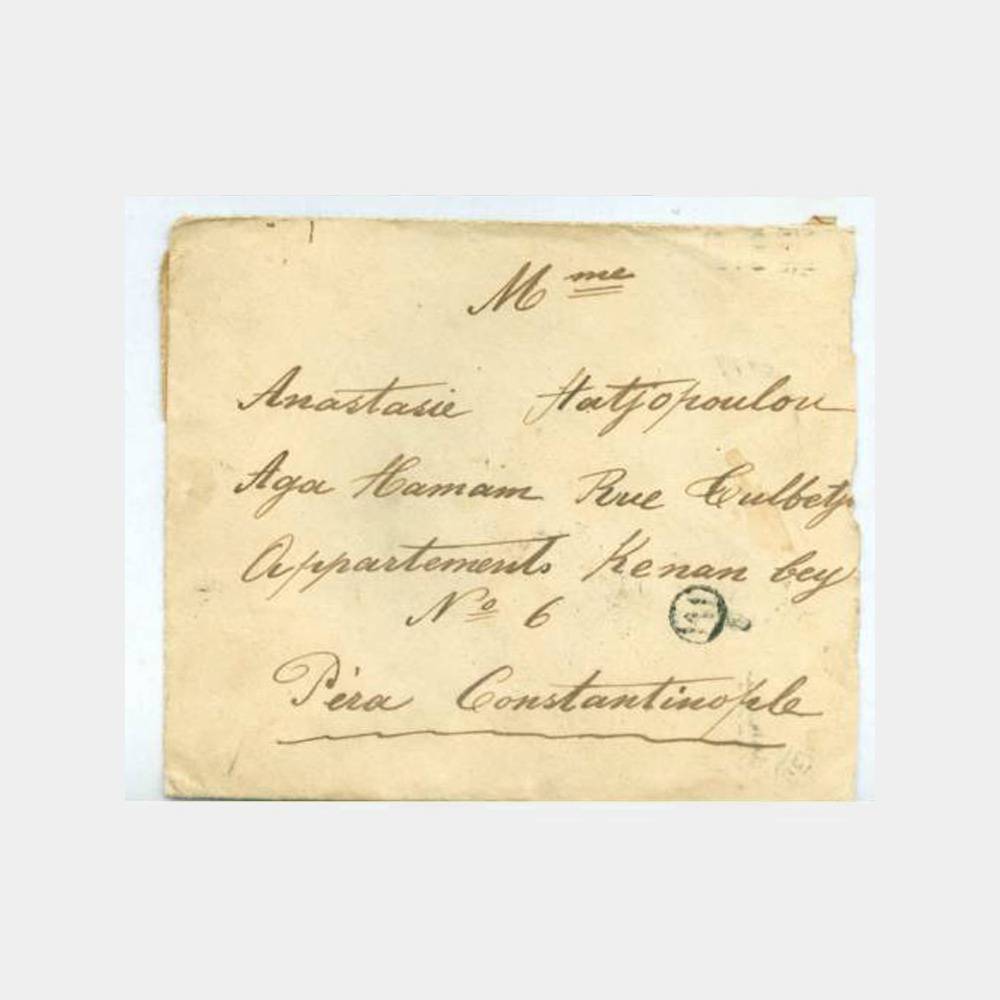 Mme
Anastasie Hatjopoulou
Aga Hamam Rue
Appartements Kenan bey
No 6
Péra Constantinople